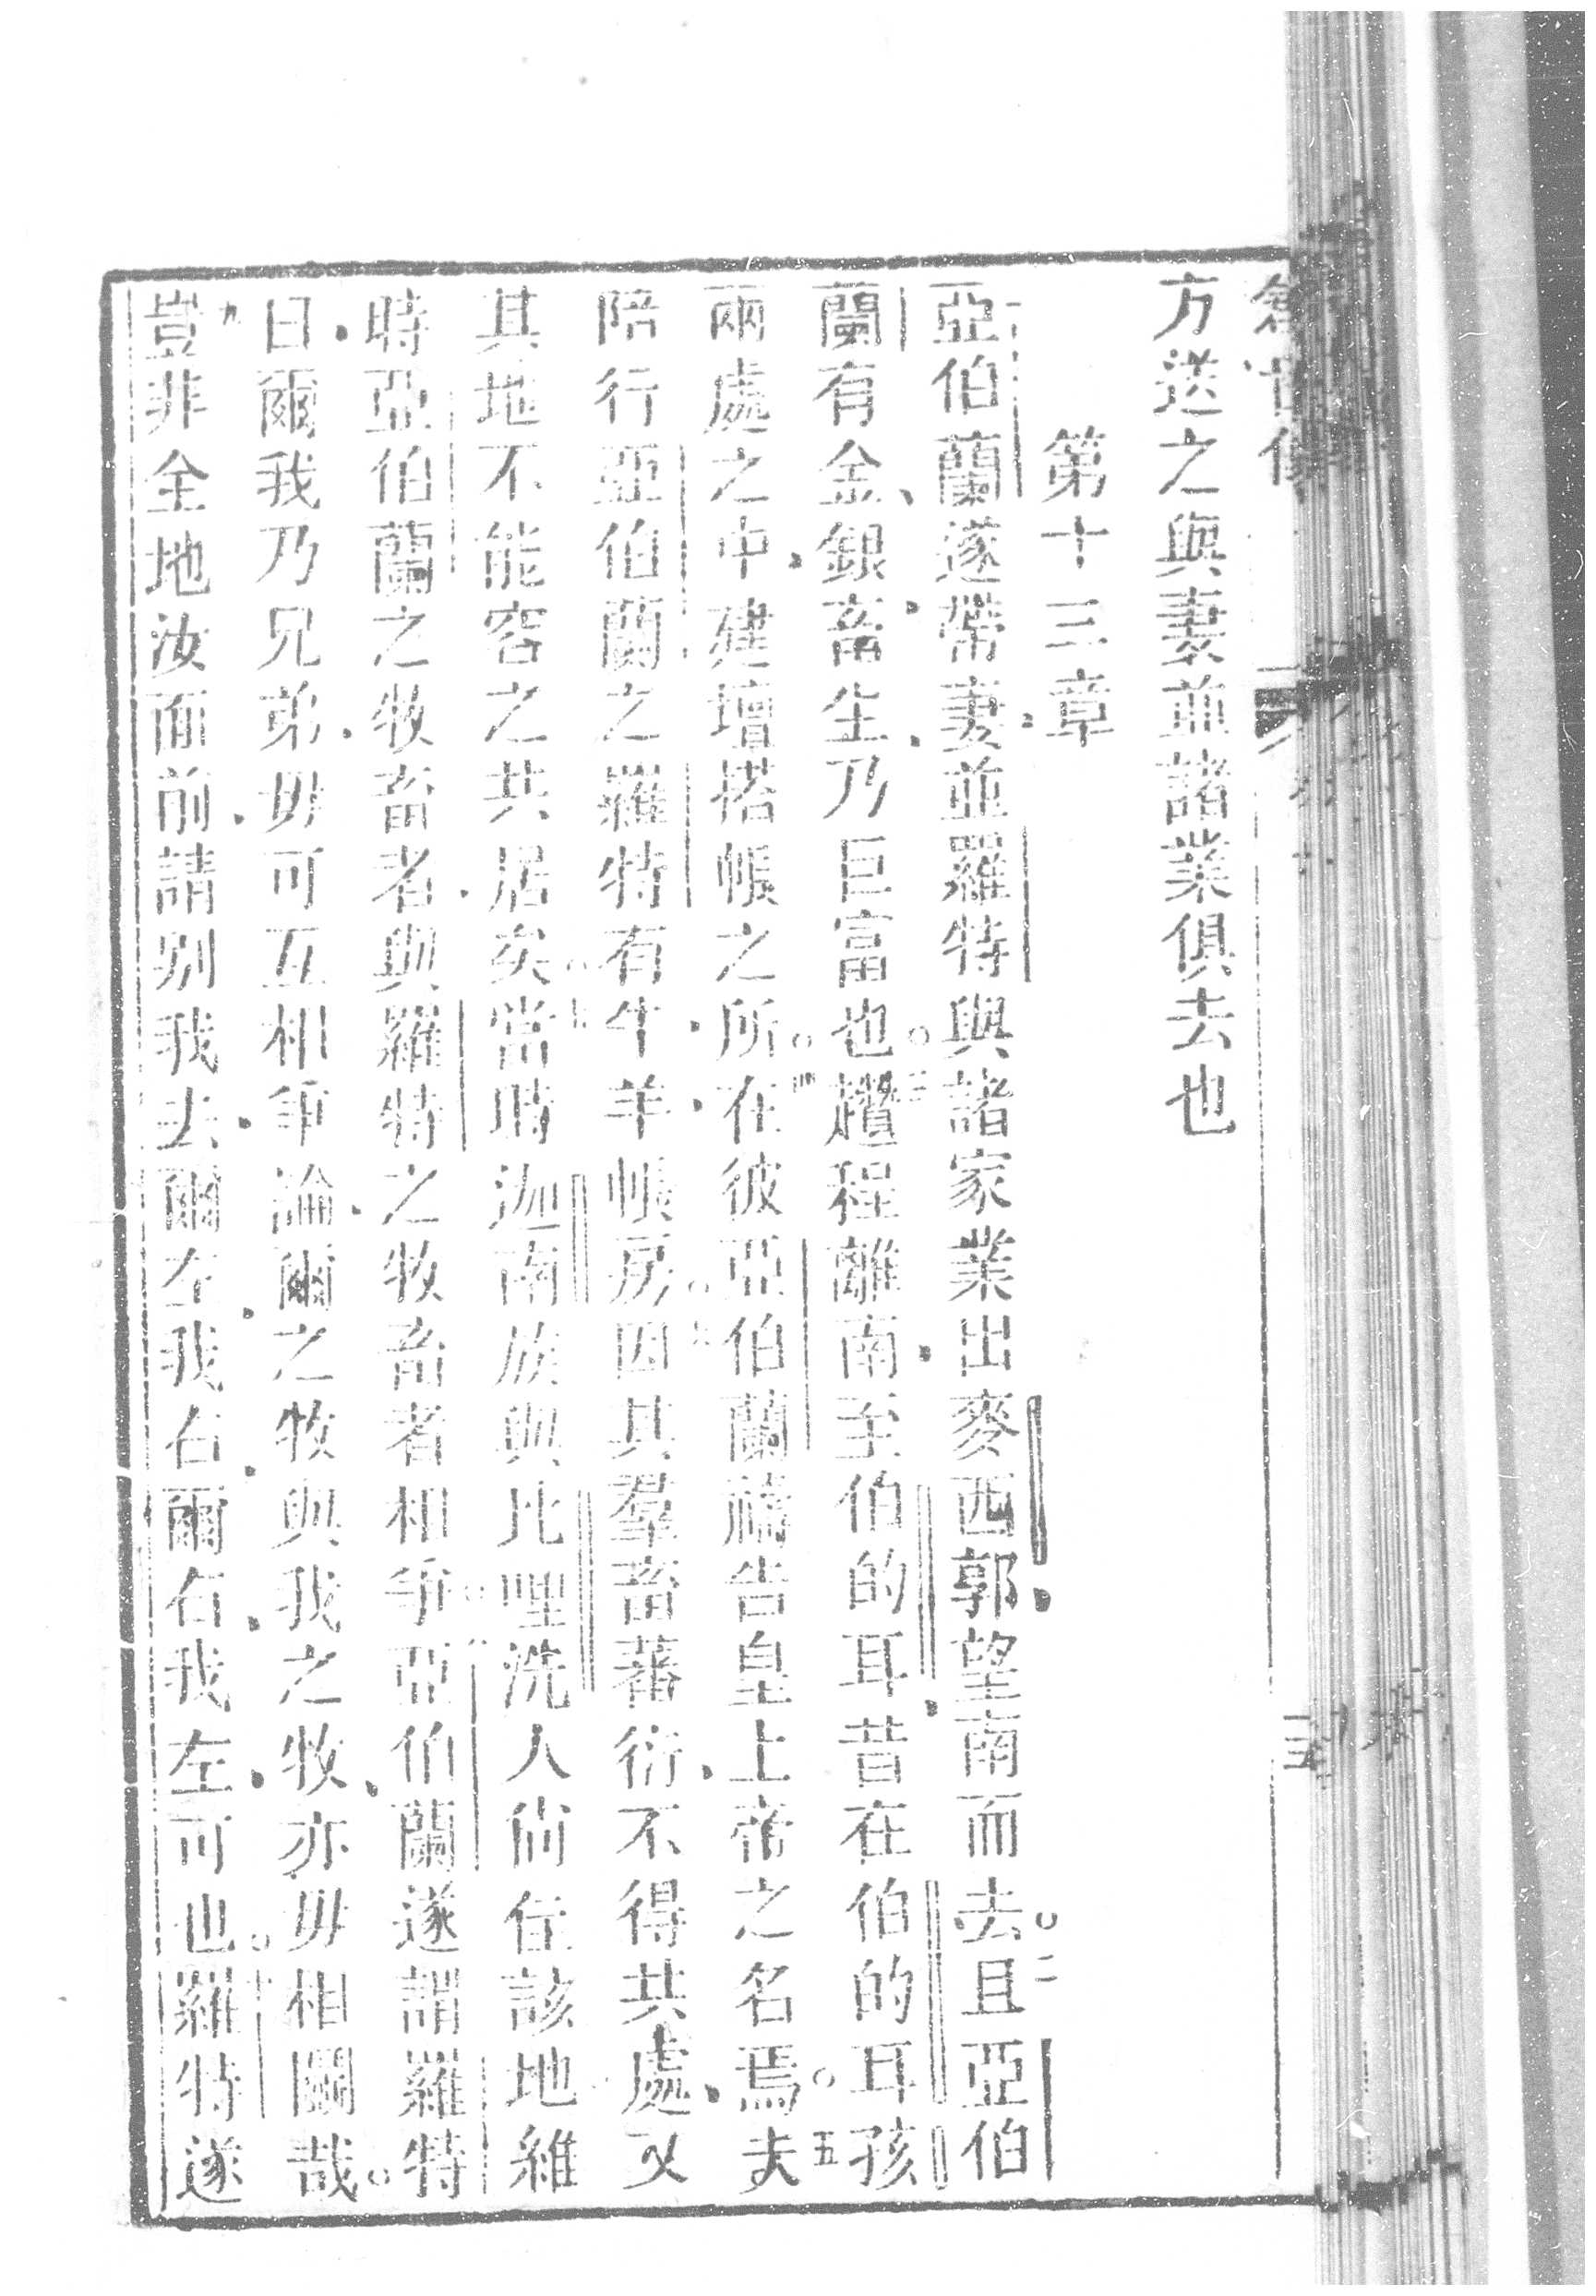 方送之與妻並諸業俱去也
第十三章
亞伯蘭遂帶妻、並羅特與諸家業出麥西郭、望南而去。二且亞伯
蘭有金、銀、畜生、乃巨富也。三趲程離南、至伯的耳、昔在伯的耳孩
兩處之中、建壇搭帳之所。四在彼亞伯蘭禱告皇上帝之名焉。五夫
陪行亞伯蘭之羅特有牛、羊、帳房。六因其羣畜蕃衍、不得共處、又
其地不能容之共居矣。七當時迦南族與比哩洗人尚住該地維
時亞伯蘭之牧畜者、與羅特之牧畜者相爭。八亞伯蘭遂謂羅特
曰、爾我乃兄弟、毋可互相爭論、爾之牧與我之牧、亦毋相鬭哉。
九豈非全地汝面前、請別我去、爾左、我右、爾右、我左、可也。十羅特遂